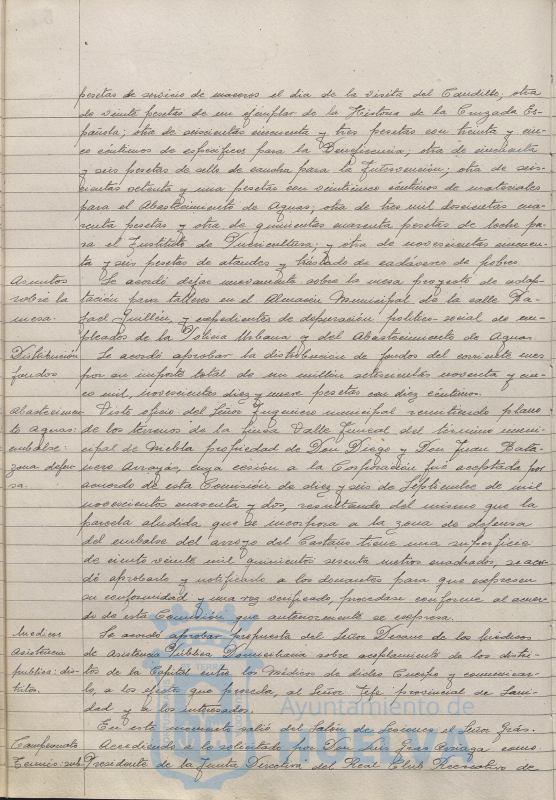 pesetas de servicio de maceros el dia de la visita del Caudillo, otra
de veinte pesetas de un ejemplar de la Historia de la Cruzada Es-
pañola; otra de seiscientas cincuenta y tres pesetas con treinta y cin-
co céntimos de específicos para la Beneficencia; otra de cincuenta
y seis pesetas de sello de caucho para la Intervención; otra de seis-
cientas setenta y una pesetas con veinticinco céntimos de materiales
para el Abastecimiento de Aguas; otra de tres mil doscientas cua-
renta pesetas y otra de quinientas cuarenta pesetas de leche pa-
ra el Instituto de Puericultura; y otra de novecientas cincuen-
ta y seis pesetas de ataudes y traslado de cadáveres de pobres
Asuntos
sobre la
mesa.
Se acordó dejar nuevamente sobre la mesa proyecto de adap-
tación para talleres en el Almacén Municipal de la calle Ra-
fael Guillén, y expedientes de depuración político-social de em-
pleados de la Policia Urbana y del Abastecimiento de Aguas
Distribución
fondos
Se acordó aprobar la distribución de fondos del corriente mes
por su importe total de un millón setecientos noventa y cin-
co mil, novecientas diez y nueve pesetas con diez céntimos.
Abastecimien-
to Aguas:
embalse:
zona defen-
sa.
Visto oficio del Señor Ingeniero municipal remitiendo plano
de los terrenos de la finca Valle Juncal del término muni-
cipal de Niebla propiedad de Don Diego y Don Juan Bata-
nero Arroyás, cuya cesión a la Corporación fué aceptada por
acuerdo de esta Comisión de diez y seis de Septiembre de mil
novecientos cuarenta y dos, resultando del mismo que la
parcela aludida que se incorpora a la zona de defensa
del embalse del arroyo del Castaño tiene una superficie
de ciento veinte mil quinientos sesenta metros cuadrados, se acor-
dó aprobarlo y notificarlo a los donantes para que expresen
su conformidad y una vez verificado, procédase conforme al acuer-
do de esta Comisión que anteriormente se expresa.
Medicos
Asistencia
publica: dis-
tritos.
Se acordó aprobar propuesta del Señor Decano de los Médicos
de Asistencia Publica Domiciliaria sobre acoplamiento de los distri-
tos de la Capital entre los Médicos de dicho Cuerpo y comunicar-
lo, a los efectos que proceda, al Señor Jefe provincial de Sani-
dad y a los interesados.
En este momento salió del Salón de Sesiones el Señor Grás.
Campeonato
Tennis: sub-
Accediendo a lo solicitado por Don Luis Gras Arriaga como
Presidente de la Junta Directiva del Real Club Recreativo de
Ayuntamiento de